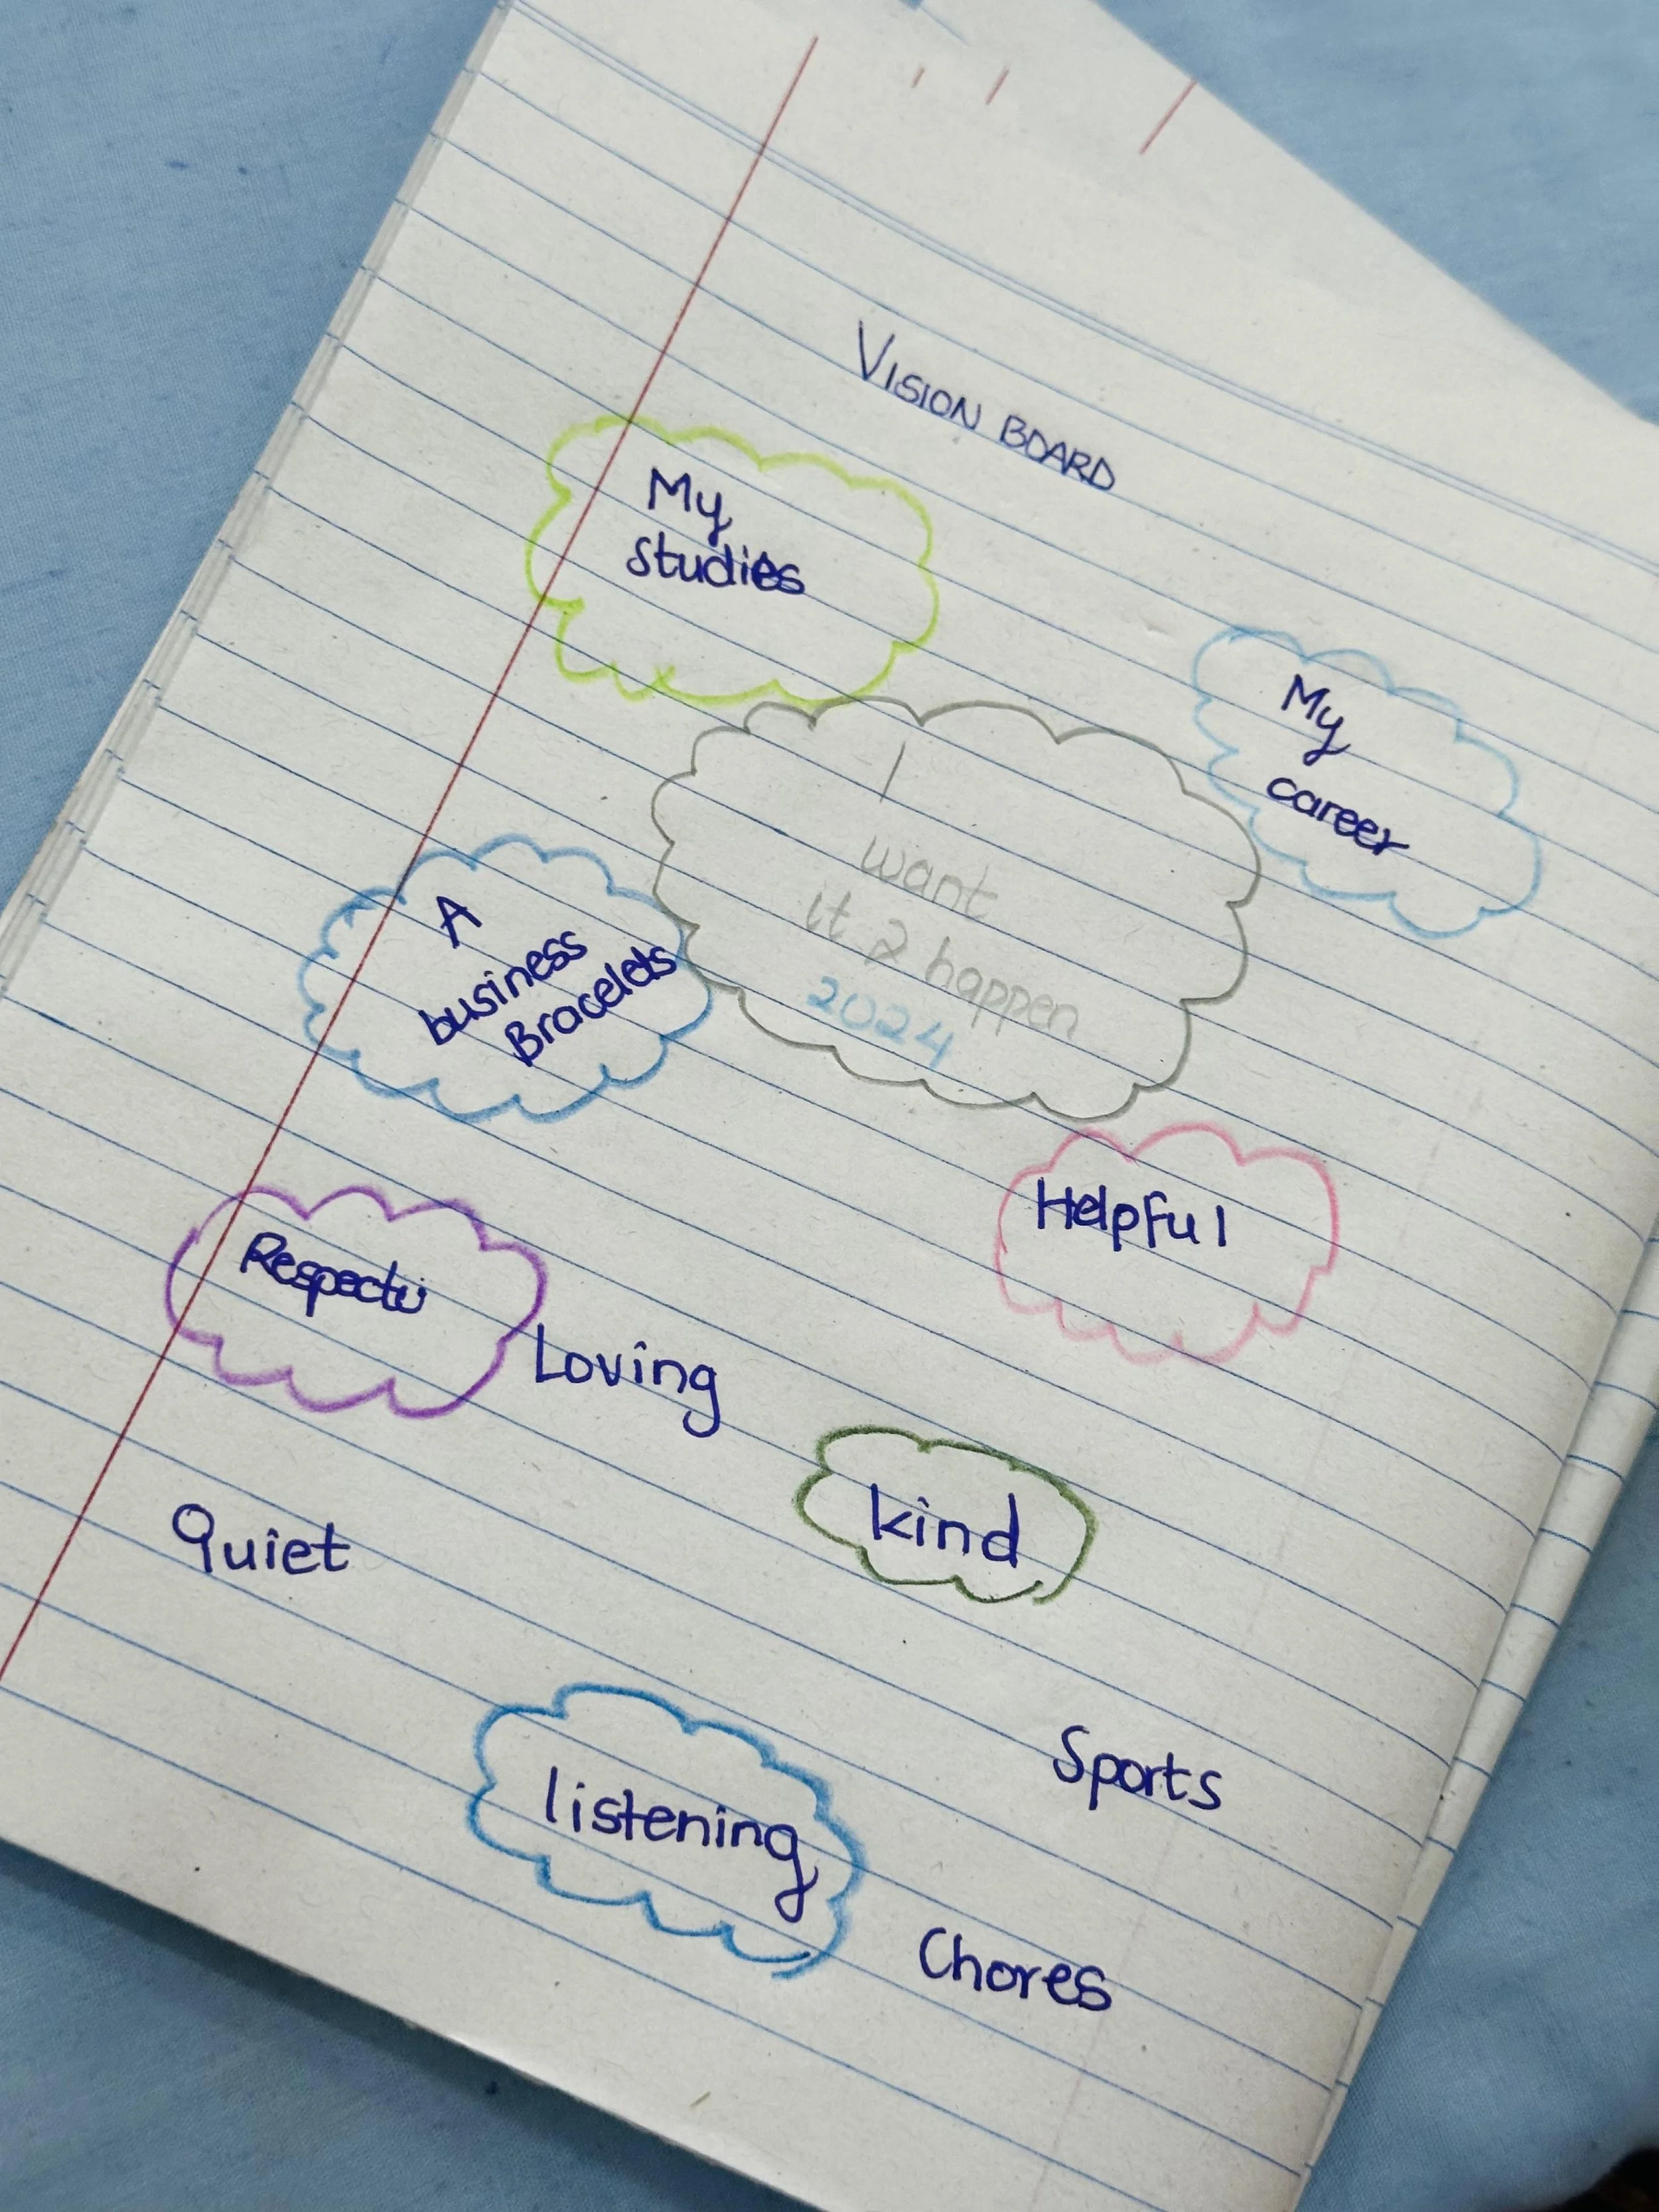 VISION BOARD
My
studies
My
career
I
want
it 2 happen
2024
A
business
Bracelets
Helpful
Loving
kind
Quiet
listening
Sports
Chores